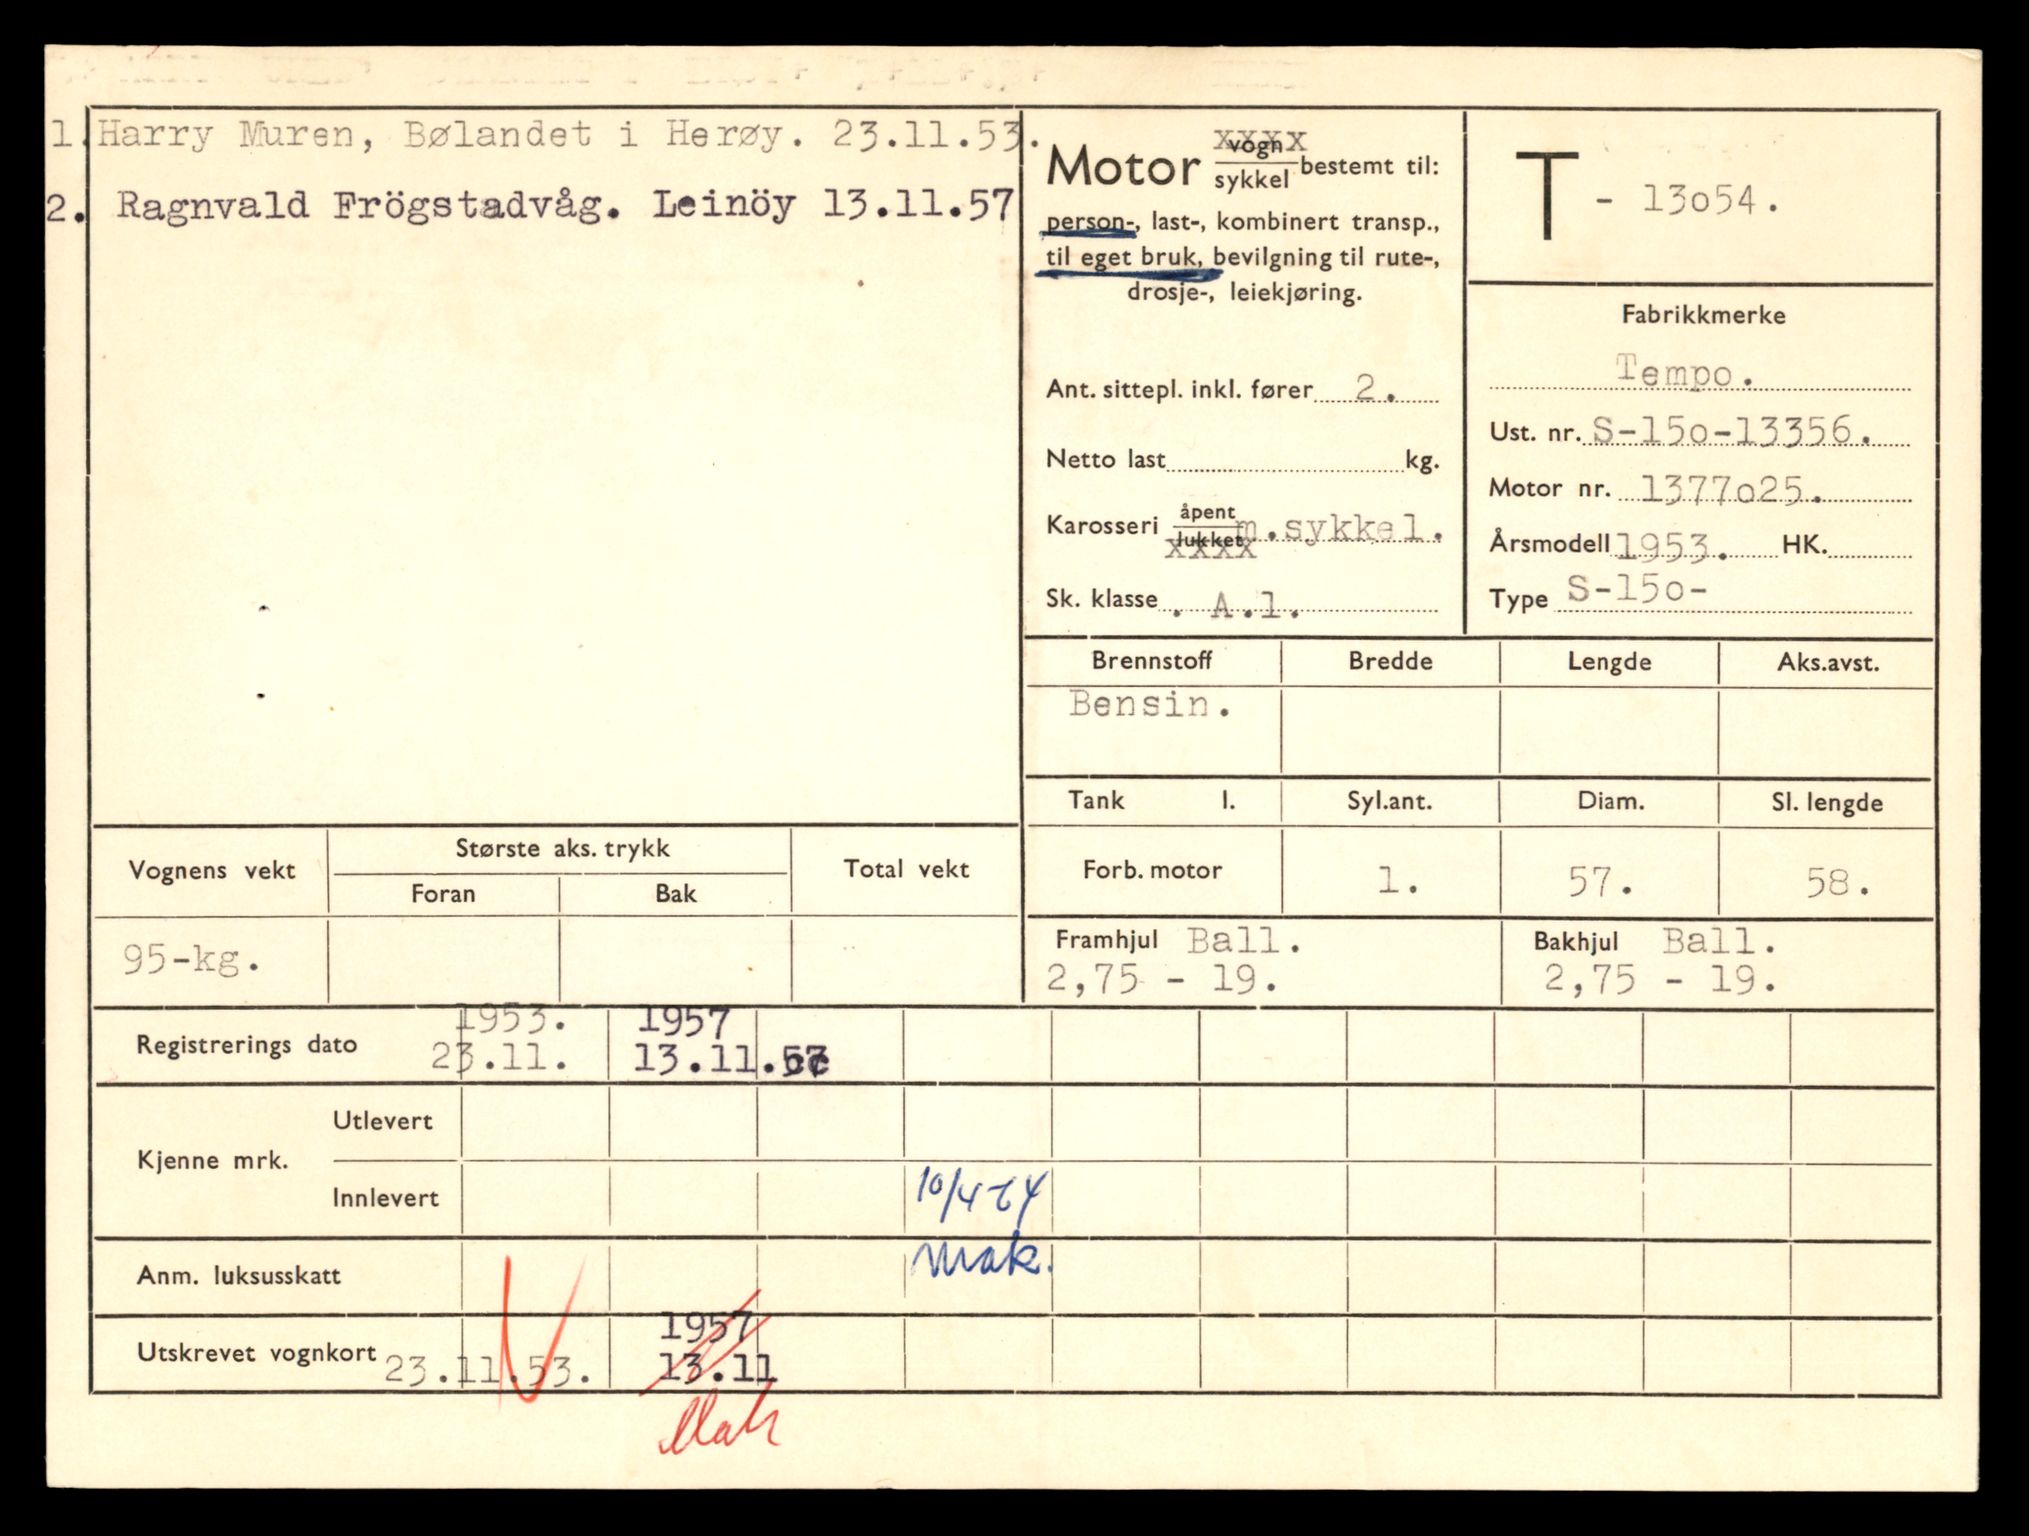 1. Harry Muren, Bølandet i Herøy. 23.11.53.
2. Ragnvald Frögstadvåg. Leinöy 13.11.57
Motor vogn/sykkel bestemt til:
xxxx
person-, last-, kombinert transp.,
til eget bruk, bevilgning til rute-,
drosje-, leiekjøring.
Ant. sittepl. inkl. fører 2.
Netto last kg.
Karosseri åpent/lukket m.sykkel.
xxxx
Sk. klasse . A.l.
T - 13o54.
Fabrikkmerke
Tempo.
Ust. nr. S-15o-13356.
Motor nr. 1377o25.
Årsmodell 1953. HK.
Type S-15o-
Brennstoff Bredde Lengde Aks.avst.
Bensin.
Tank l. Syl.ant. Diam. Sl. lengde
Forb. motor 1. 57. 58.
Framhjul Ball. Bakhjul Ball.
2,75 - 19. 2,75 - 19.
Vognens vekt Største aks. trykk Total vekt
Foran Bak
95-kg.
1953. 1957
Registrerings dato 23.11. 13.11.
Kjenne mrk. Utlevert
Innlevert 10/4-64
Mak.
Anm. luksusskatt
1957
Utskrevet vognkort 23.11.53. 13.11
Mak